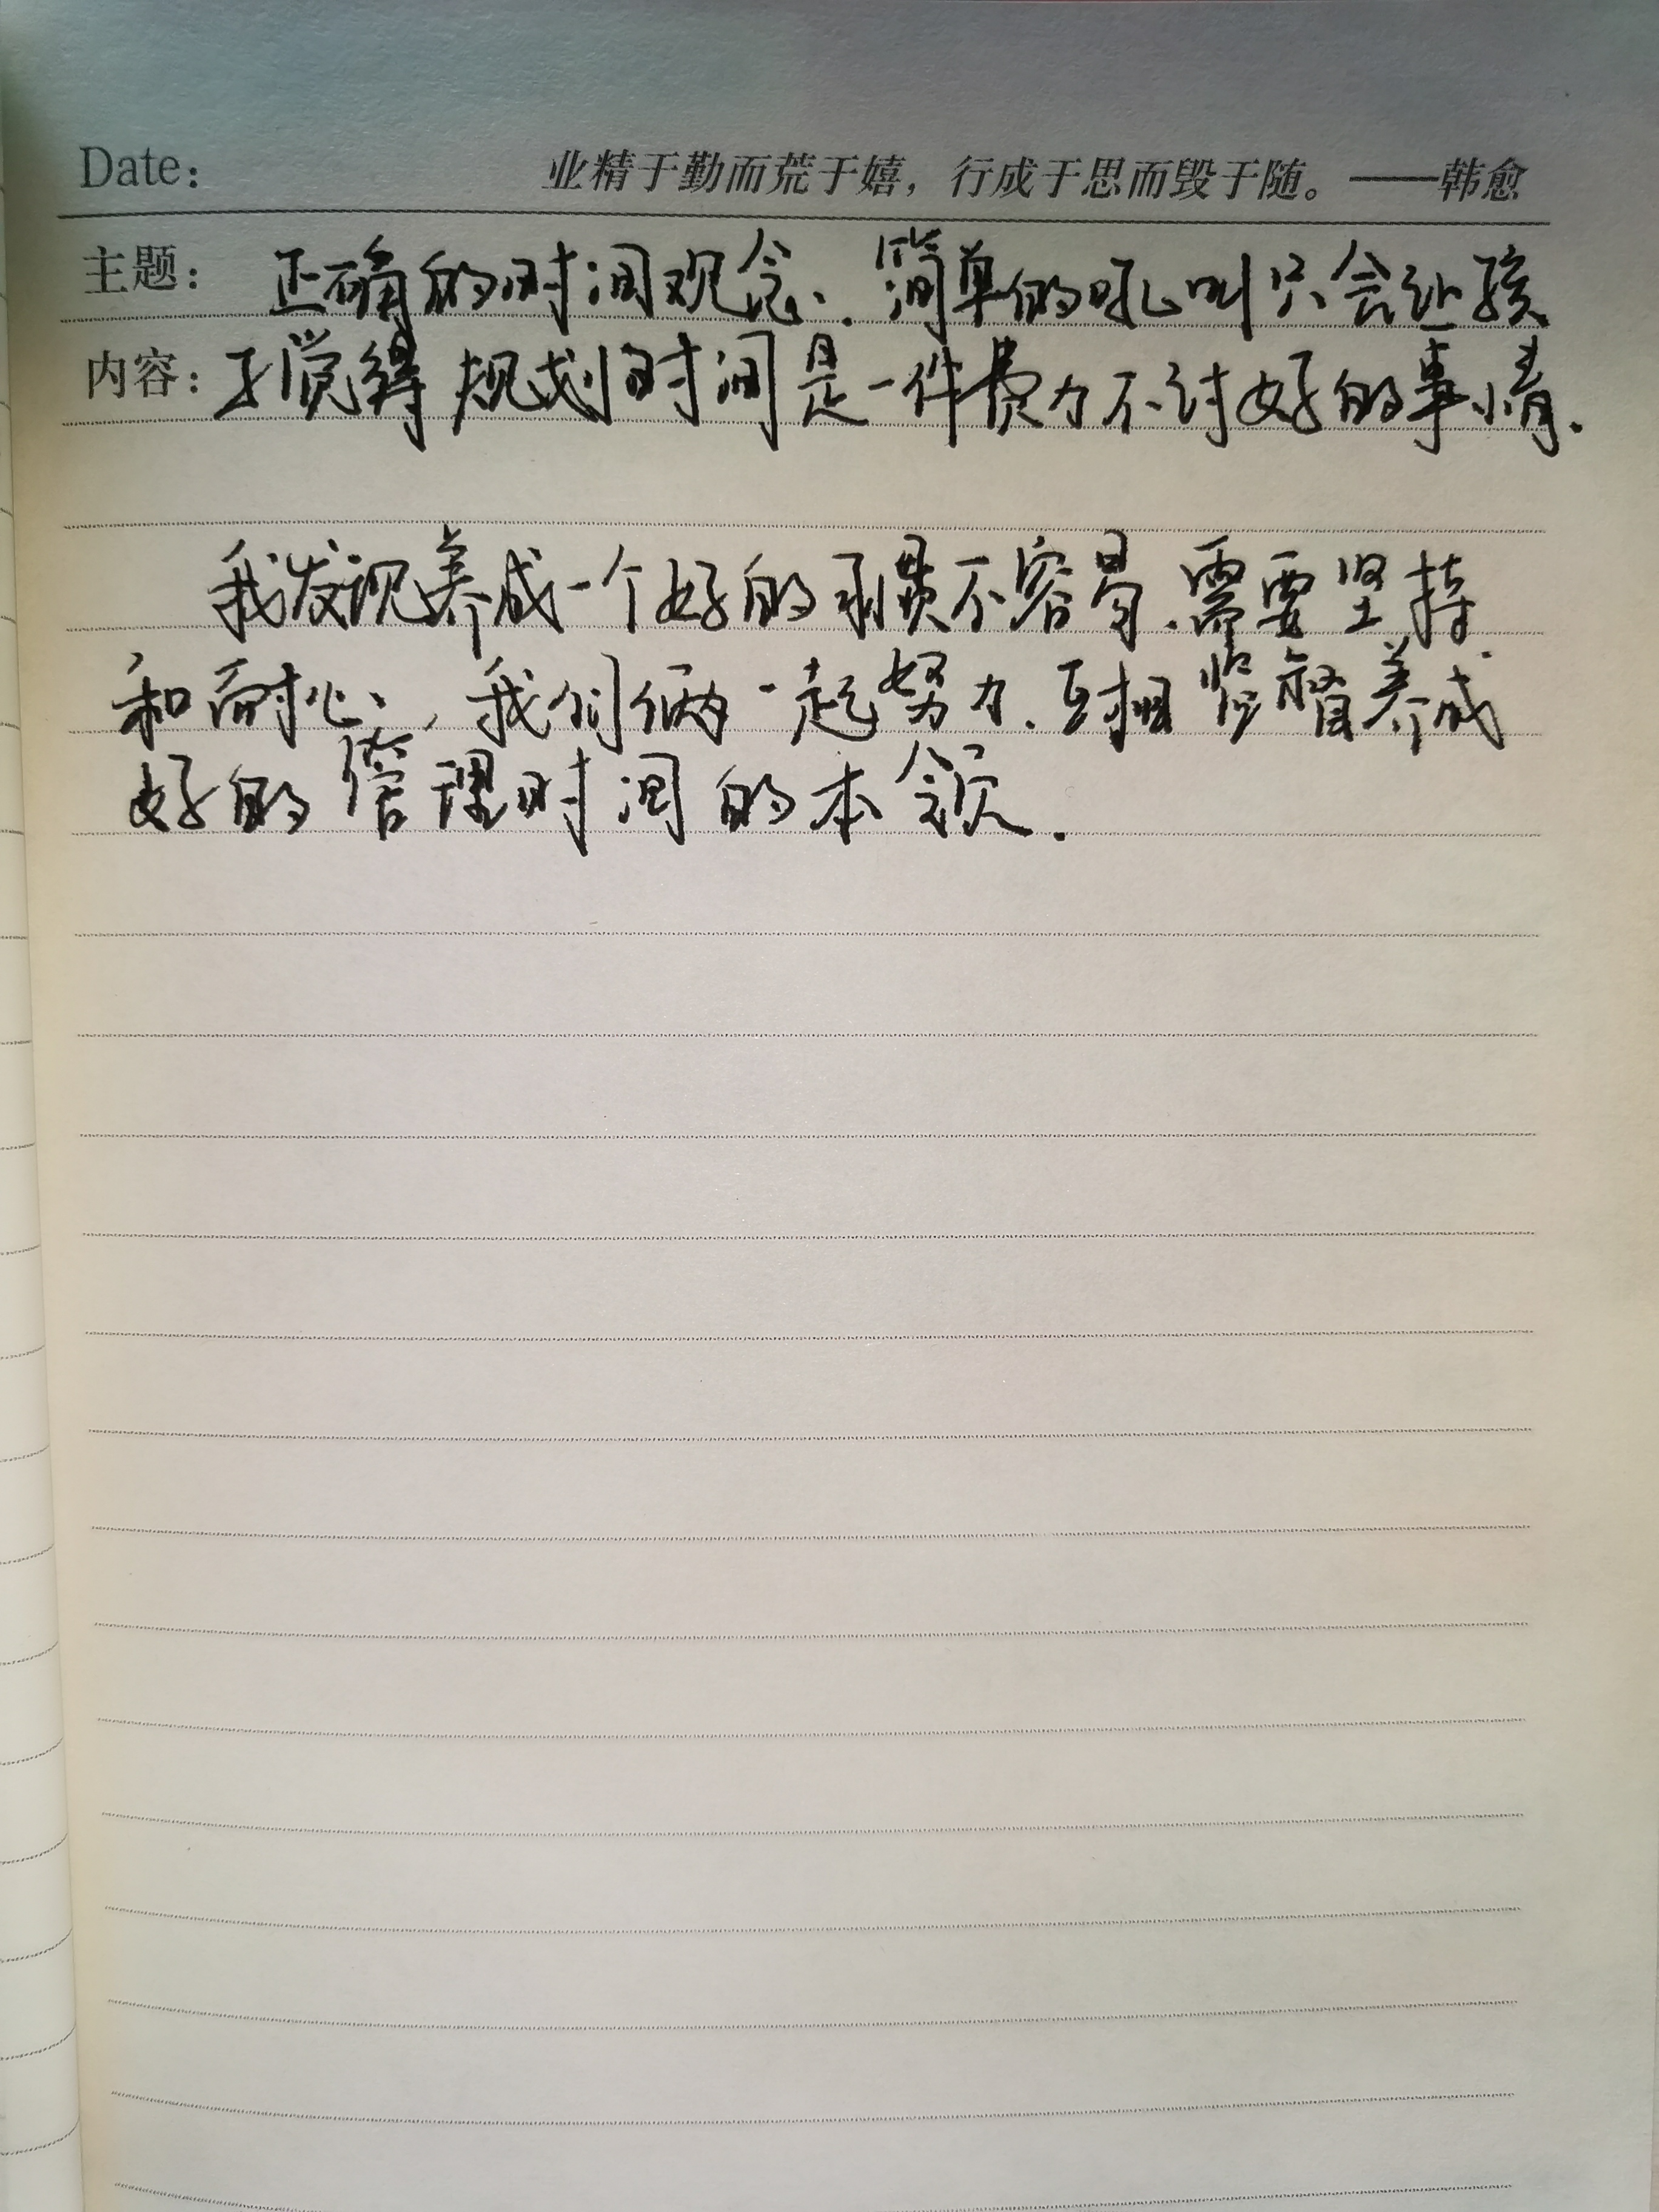 Date: 业精于勤而荒于嬉，行成于思而毁于随。——韩愈
主题： 正确的时间观念. 简单的吼叫只会让孩
内容：子觉得规划时间是一件费力不讨好的事情.
我发现养成一个好的习惯不容易.需要坚持
和耐心，我们俩一起努力.互相监督养成
好的管理时间的本领.